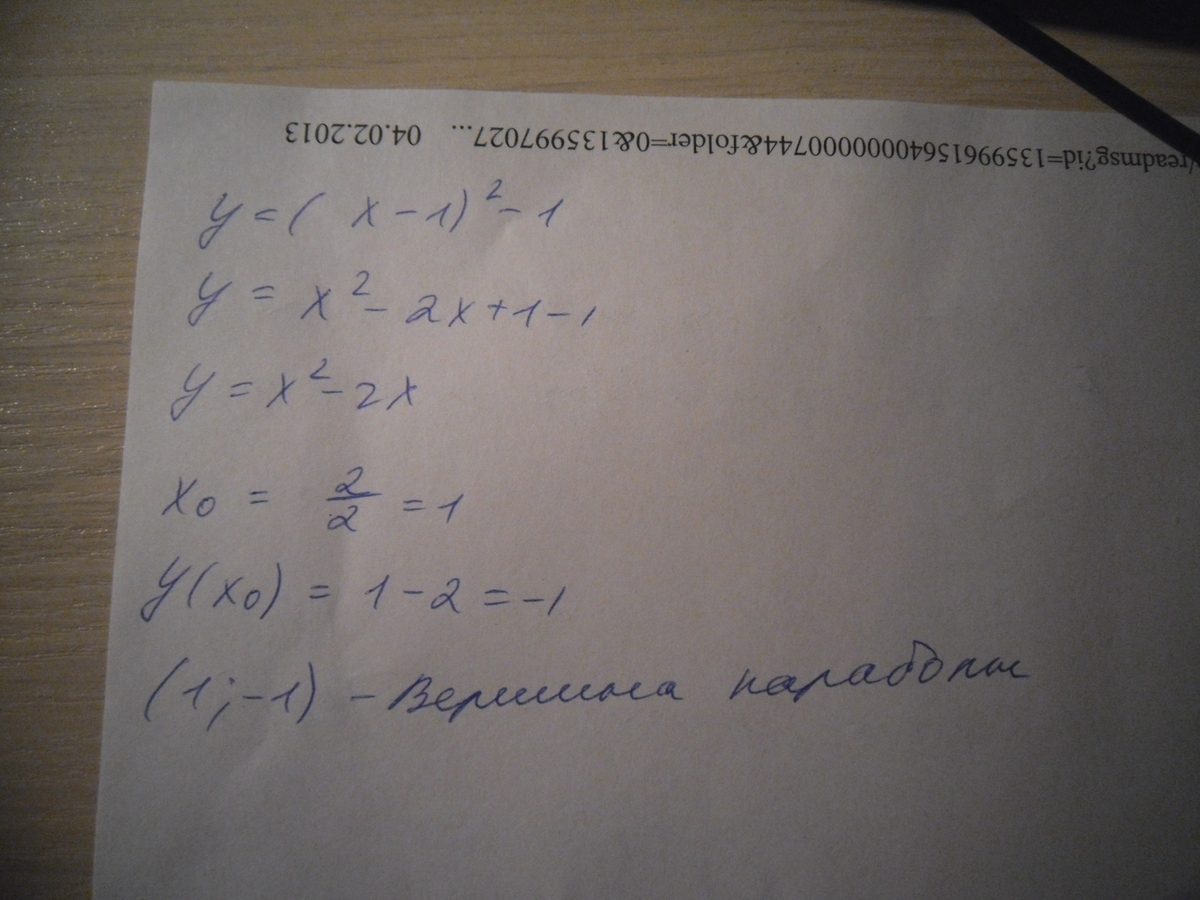 /readmsg?id=13599615640000000744&folder=0&135997027... 04.02.2013
y = ( x - 1)² - 1
y = x² - 2x + 1 - 1
y = x² - 2x
x₀ = 2/2 = 1
y(x₀) = 1 - 2 = -1
(1; -1) - Вершина параболы